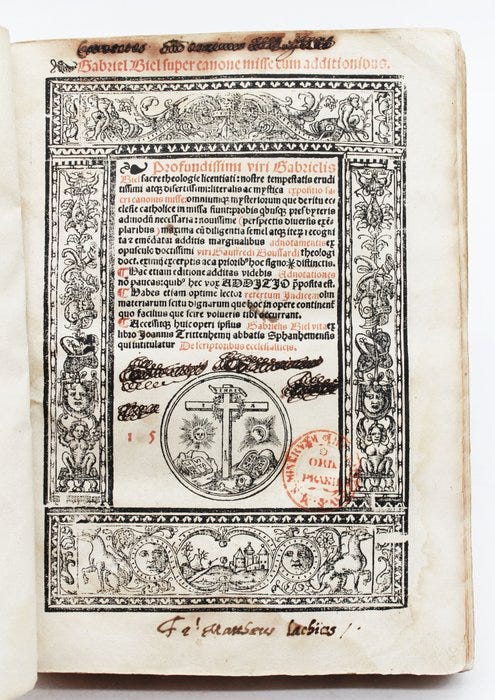 Gabriel Biel super canone misse cum additionibus.
Profundissimi viri Gabrielis
Biel sacre theologie licentiati: nostre tempestatis erudi
tissimi atqꝫ disertissimi: literalis ac mystica expositio sa
cri canonis misse: omniumqꝫ mysteriorum que de ritu ec
clesie catholice in missa fiunt: probis qbusqꝫ presbyteris
admodū necessaria: nouissime (perspectis diuersis exē
plaribus) maxima cū diligentia semel atqꝫ iteꝝ recogni
ta ⁊ emēdata: additis marginalibus adnotamentis ex
opusculo doctissimi viri Gaufredi Boussardi theologi
doct. eximij excerptis ac a prioribꝰ hoc signo distinctis.
¶ Hac etiam editione additas videbis Adnotationes
nō paucas: quibꝰ hec vox ADDITIO p̄posita est.
¶ Habes etiam optime lector refertum Indicem oīm
materiarum scitu dignarum que hoc in opere continent̃
quo facilius que scire volueris tibi occurrant.
¶ Accessitqꝫ huic operi ipsius Gabrielis Biel vita ex
libro Joannis Trittenhemij abbatis Spanhemensis
qui intitulatur De scriptoribus ecclesiasticis.
1 5
ORD
PRAED
Matthæus